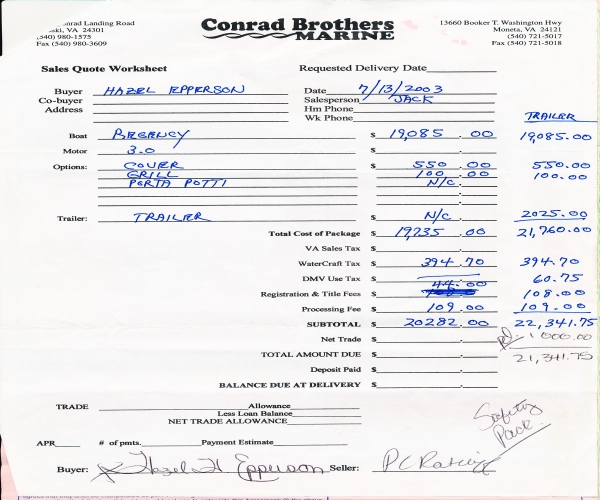 onrad Landing Road
ski, VA 24301
540) 980-1575
Fax (540) 980-3609
Conrad Brothers
MARINE
13660 Booker T. Washington Hwy
Moneta, VA 24121
(540) 721-5017
Fax (540) 721-5018
Sales Quote Worksheet Requested Delivery Date
Buyer HAZEL EPPERSON Date 7/13/2003
Co-buyer Salesperson JACK
Address Hm Phone
Wk Phone TRAILER
Boat REGENCY $ 19,085.00 19,085.00
Motor 3.0 $
Options: COVER $ 550.00 550.00
GRILL 100.00 100.00
PORTA POTTI N/C.
Trailer: TRAILER $ N/C 2025.00
Total Cost of Package $ 19735.00 21,760.00
VA Sales Tax $
WaterCraft Tax $ 394.70 394.70
DMV Use Tax $ 60.75
Registration & Title Fees $ 44.00 108.00
Processing Fee $ 109.00 109.00
SUBTOTAL $ 20282.00 22,341.75
Net Trade $ pd 1000.00
TOTAL AMOUNT DUE $ 21,341.75
Deposit Paid $
BALANCE DUE AT DELIVERY $
TRADE Allowance
Less Loan Balance
NET TRADE ALLOWANCE
Safety
Pack.
APR # of pmts. Payment Estimate
Buyer: x Hazel H Epperson Seller: